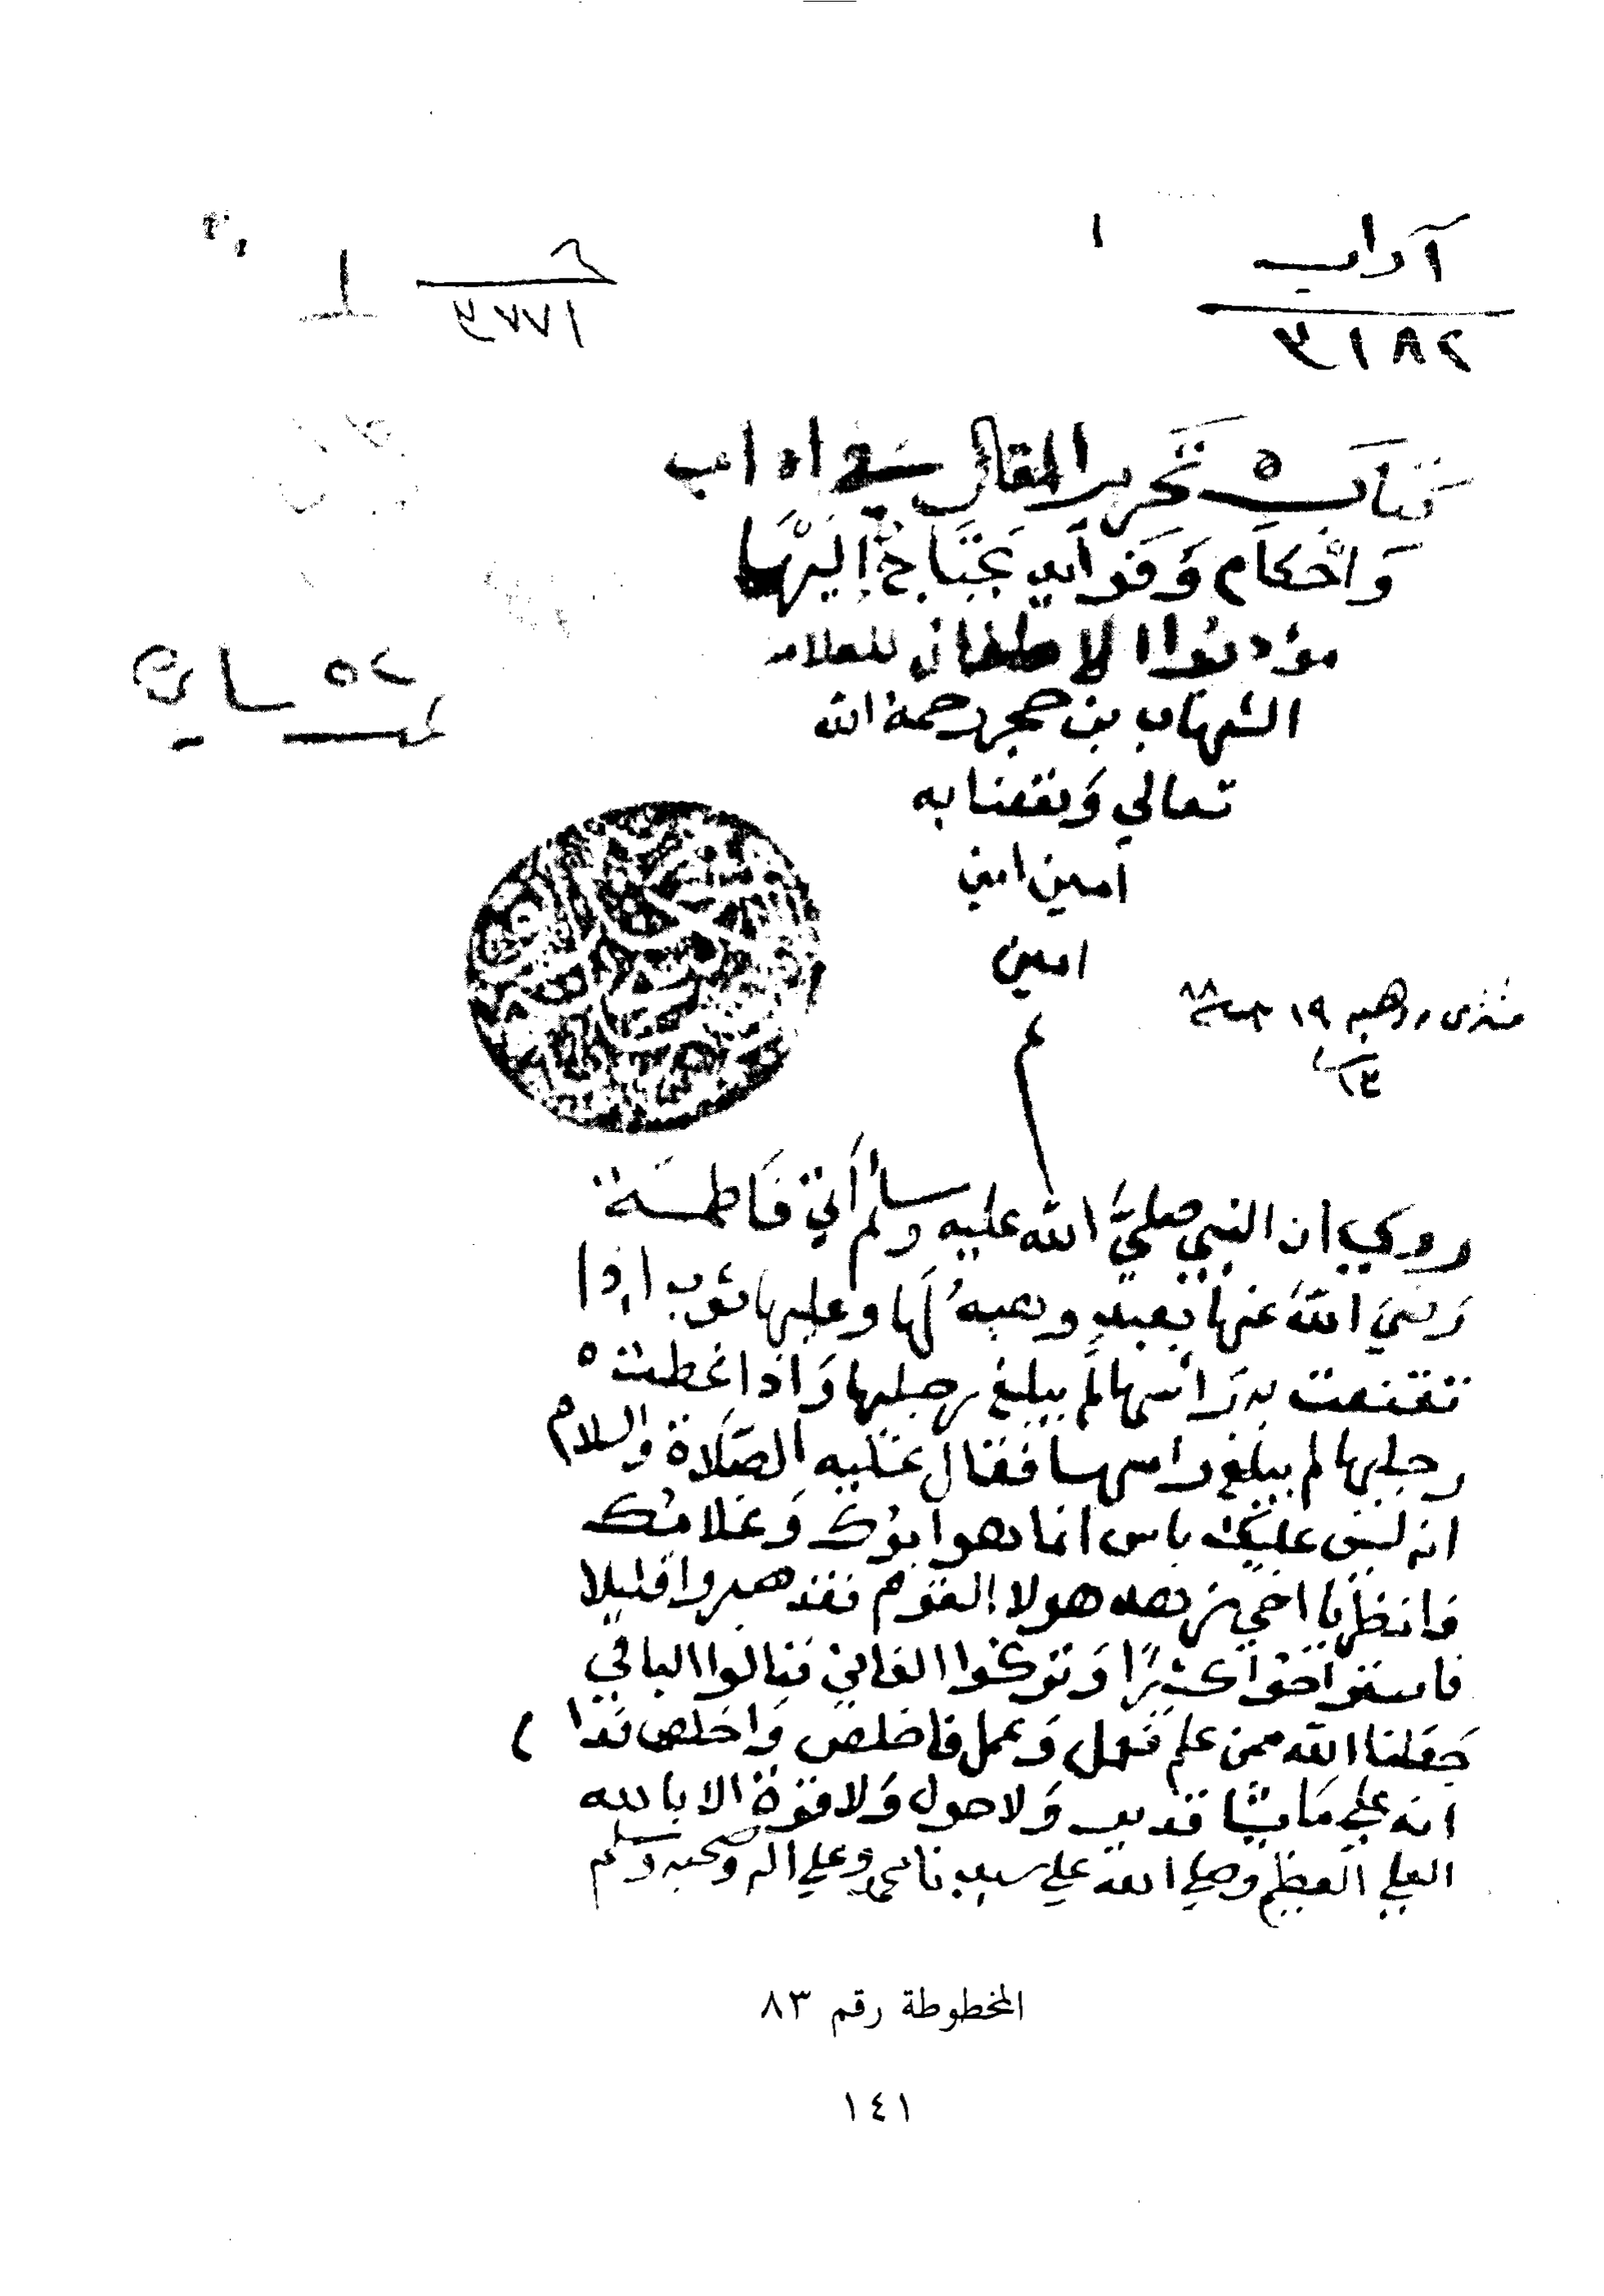 آداب
٣١٨٢
١
٣٧٧١
كتاب تحرير المقال في اداب
وَاحْكام وَفوَايد يحتاج إليْهَا
مؤدبوا الاطفال للعلامه
الشهاب بن حجر رحمة الله
تعالي وَنفعنا به
امين امين
امين
١٩
روي ان النبي صليَّ الله عليه وسلم أتي فَاطمَة
رَضيَ اللهُ عنها بعبد وهبهُ لَها وعليها ثوب اذا
تقنعت به رَأسها لم يبلغ رجليها وَاذا غطت
رجليها لم يبلغ راسها فقال عَليه الصَّلاة والسلام
انه ليس عليك باس انما هوابوك وَغلامك
فانظر يا اخي زهد هولا القوم فقد صبروا قليلا
فاستراحُوا كثيرًا وَتركوا الفاني فنالوا الباقي
جَعَلنا الله ممن علم فعمل وَعمل فاخلص وَاخلص
انه علي مَايشا قدير وَلاحول وَلا قوة الا بالله
العلي العظيم وصلي الله علي سيدنا محمد وعلي اله وصحبه وسلم
المخطوطة رقم ٨٣
١٤١